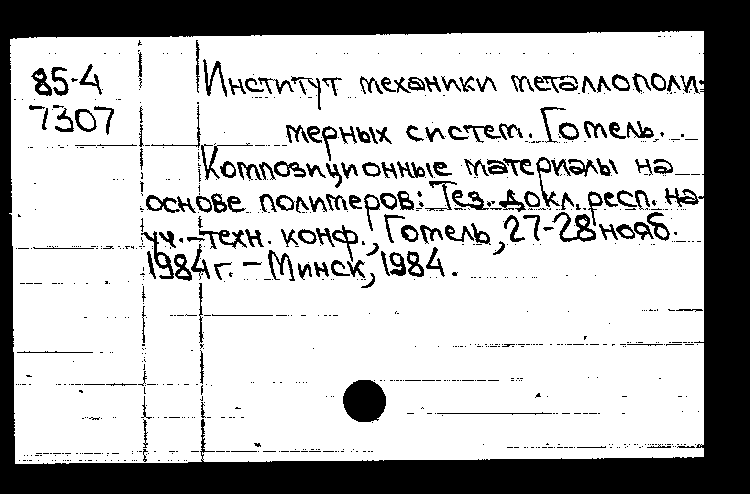 85-4
7307
Институт механики металлополи-
мерных систем. Гомель.
Композиционные материалы на
основе полимеров: Тез. докл. респ. на-
уч.-техн. конф., Гомель, 27-28 нояб.
1984 г. - Минск, 1984.